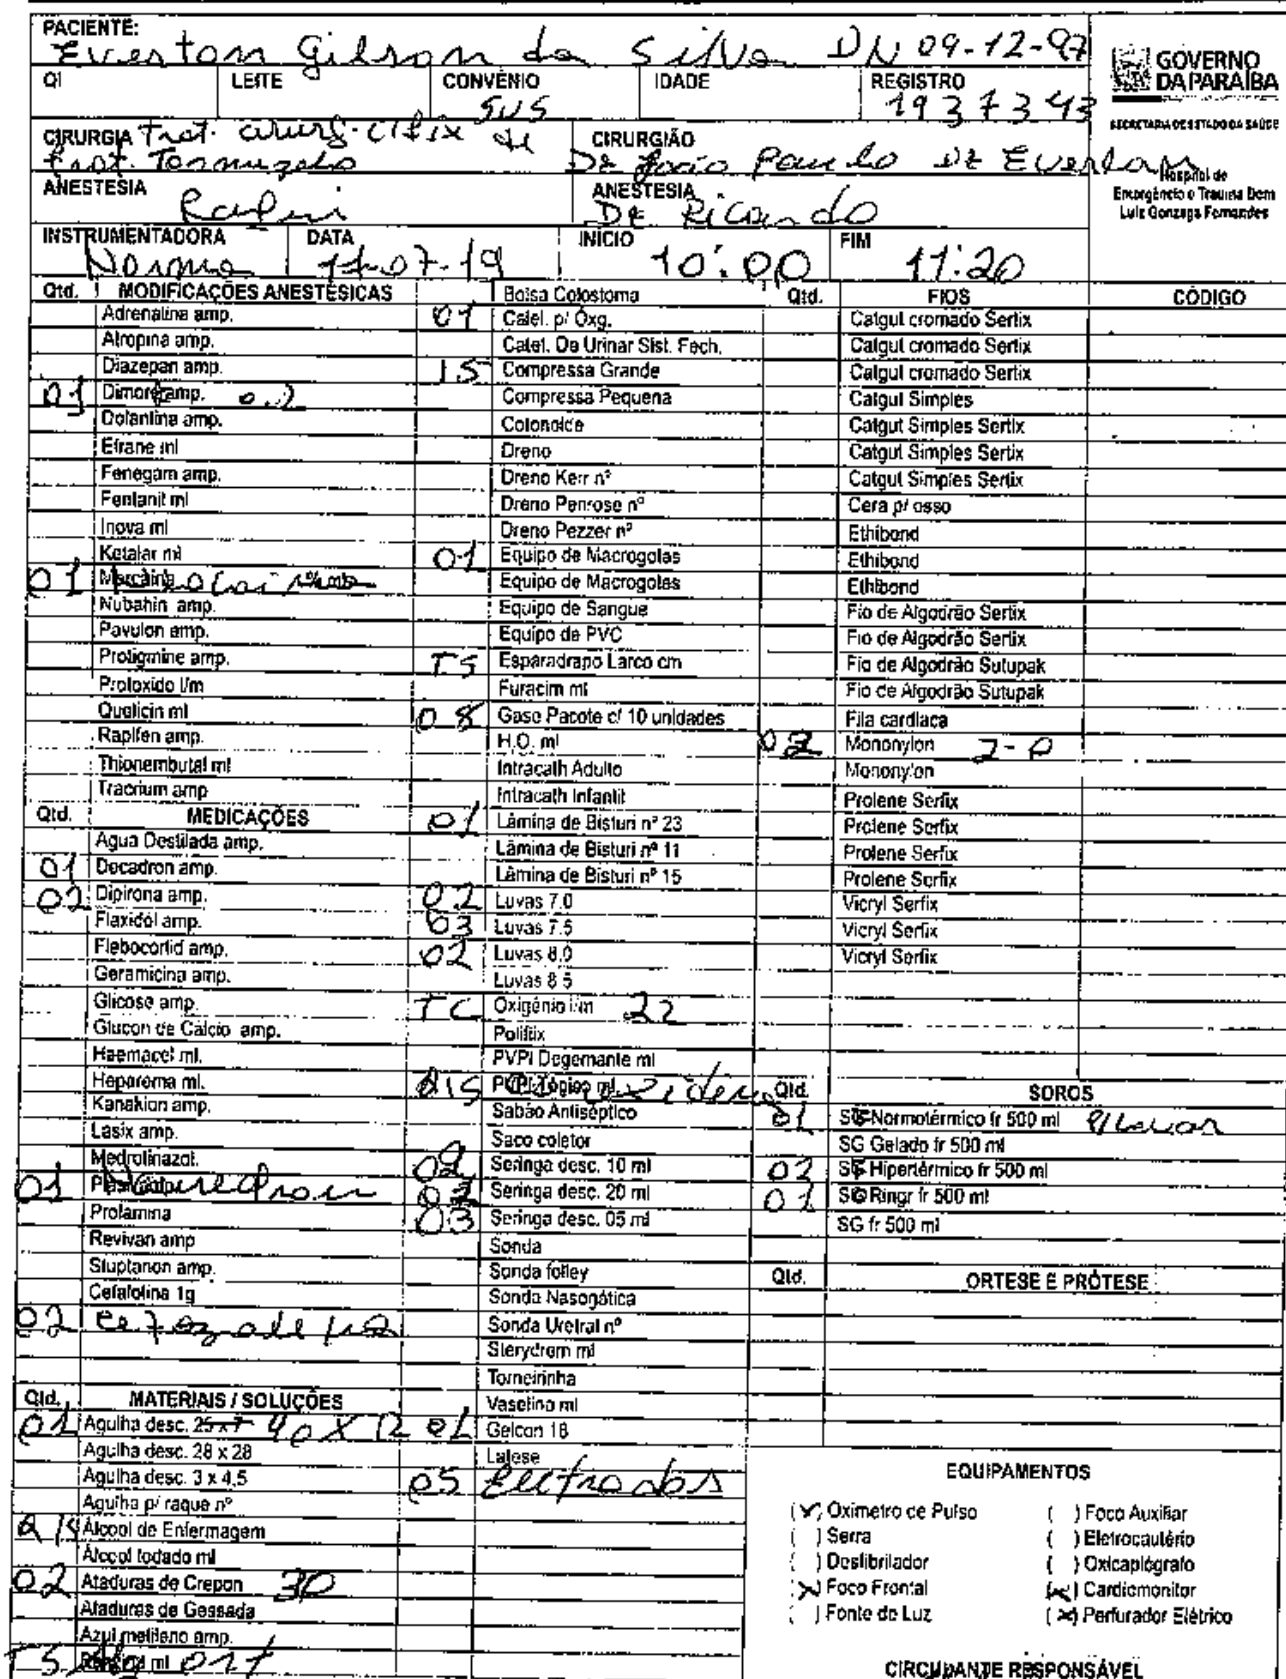 PACIENTE:
Everton Gilson da Silva DN 09-12-97
GOVERNO
DA PARAÍBA
SECRETARIA DE ESTADO DA SAÚDE
Hospital de
Emergência e Trauma Dom
Luiz Gonzaga Fernandes
QI LEITE CONVÊNIO SUS IDADE REGISTRO 1937343
CIRURGIA Trat. cirurg. de
frat. Tornozelo
CIRURGIÃO
Dr João Paulo Dr Everton
ANESTESIA Raqui
ANESTESIA Dr Ricardo
INSTRUMENTADORA Norma DATA 11-07-19 INÍCIO 10:00 FIM 11:20
Qtd. MODIFICAÇÕES ANESTÉSICAS
Adrenalina amp.
Atropina amp.
Diazepan amp.
01 Dimorf amp. 0.2
Dolantina amp.
Efrane ml
Fenegam amp.
Fentanil ml
Inova ml
Ketalar ml
01 Marcaina
Nubahin amp.
Pavulon amp.
Protigmine amp.
Protoxido l/m
Quelicin ml
Rapifen amp.
Thionembutal ml
Tracrium amp
Qtd. MEDICAÇÕES
Agua Destilada amp.
01 Decadron amp.
02 Dipirona amp.
Flaxidol amp.
Flebocortid amp.
Geramicina amp.
Glicose amp.
Glucon de Cálcio amp.
Haemacel ml.
Heparema ml.
Kanakion amp.
Lasix amp.
Medrotinazol.
01 Nausedron
Prolamina
Revivan amp
Stuptanon amp.
Cefalotina 1g
02 cefazolina
Qtd. MATERIAIS / SOLUÇÕES
01 Agulha desc. 25 x 7 40 X 12
Agulha desc. 28 x 28
Agulha desc. 3 x 4,5
Agulha p/ raque nº
Álcool de Enfermagem
Álcool Iodado ml
02 Ataduras de Crepon 30
Ataduras de Gessada
Azul metileno amp.
TS ml
Bolsa Colostoma
01 Catet. p/ Óxg.
Catet. De Urinar Sist. Fech.
15 Compressa Grande
Compressa Pequena
Cotonoide
Dreno
Dreno Kerr nº
Dreno Penrose nº
Dreno Pezzer nº
01 Equipo de Macrogotas
Equipo de Macrogotas
Equipo de Sangue
Equipo de PVC
TS Esparadrapo Larco cm
Furacim ml
08 Gase Pacote c/ 10 unidades
H.O. ml
Intracath Adulto
Intracath Infantil
01 Lâmina de Bisturi nº 23
Lâmina de Bisturi nº 11
Lâmina de Bisturi nº 15
02 Luvas 7.0
03 Luvas 7.5
02 Luvas 8.0
Luvas 8.5
TC Oxigênio l/m
Polifix
PVPI Degermante ml
PVPI Tópico ml
Sabão Antiséptico
Saco coletor
02 Seringa desc. 10 ml
Seringa desc. 20 ml
03 Seringa desc. 05 ml
Sonda
Sonda folley
Sonda Nasogática
Sonda Uretral nº
Sterydrem ml
Torneirinha
Vaselina ml
01 Gelcon 18
Latese
05 Eletrodos
Qtd. FIOS CÓDIGO
Catgut cromado Sertix
Catgut cromado Sertix
Catgut cromado Sertix
Catgut Simples
Catgut Simples Sertix
Catgut Simples Sertix
Catgut Simples Sertix
Cera p/ osso
Ethibond
Ethibond
Ethibond
Fio de Algodrão Sertix
Fio de Algodrão Sertix
Fio de Algodrão Sutupak
Fio de Algodrão Sutupak
Fila cardiaca
Mononylon 2-0
Mononylon
Prolene Serfix
Prolene Serfix
Prolene Serfix
Prolene Serfix
Vicryl Serfix
Vicryl Serfix
Vicryl Serfix
Qtd. SOROS
01 SF Normotérmico fr 500 ml p/ Lavar
SG Gelado fr 500 ml
SF Hipertérmico fr 500 ml
SG Ringr fr 500 ml
SG fr 500 ml
Qtd. ORTESE E PRÓTESE
EQUIPAMENTOS
(x) Oximetro de Pulso ( ) Foco Auxiliar
( ) Serra ( ) Eletrocautério
( ) Desfibrilador ( ) Oxicapiógrafo
(x) Foco Frontal (x) Cardiomonitor
( ) Fonte de Luz (x) Perfurador Elétrico
CIRCULANTE RESPONSÁVEL